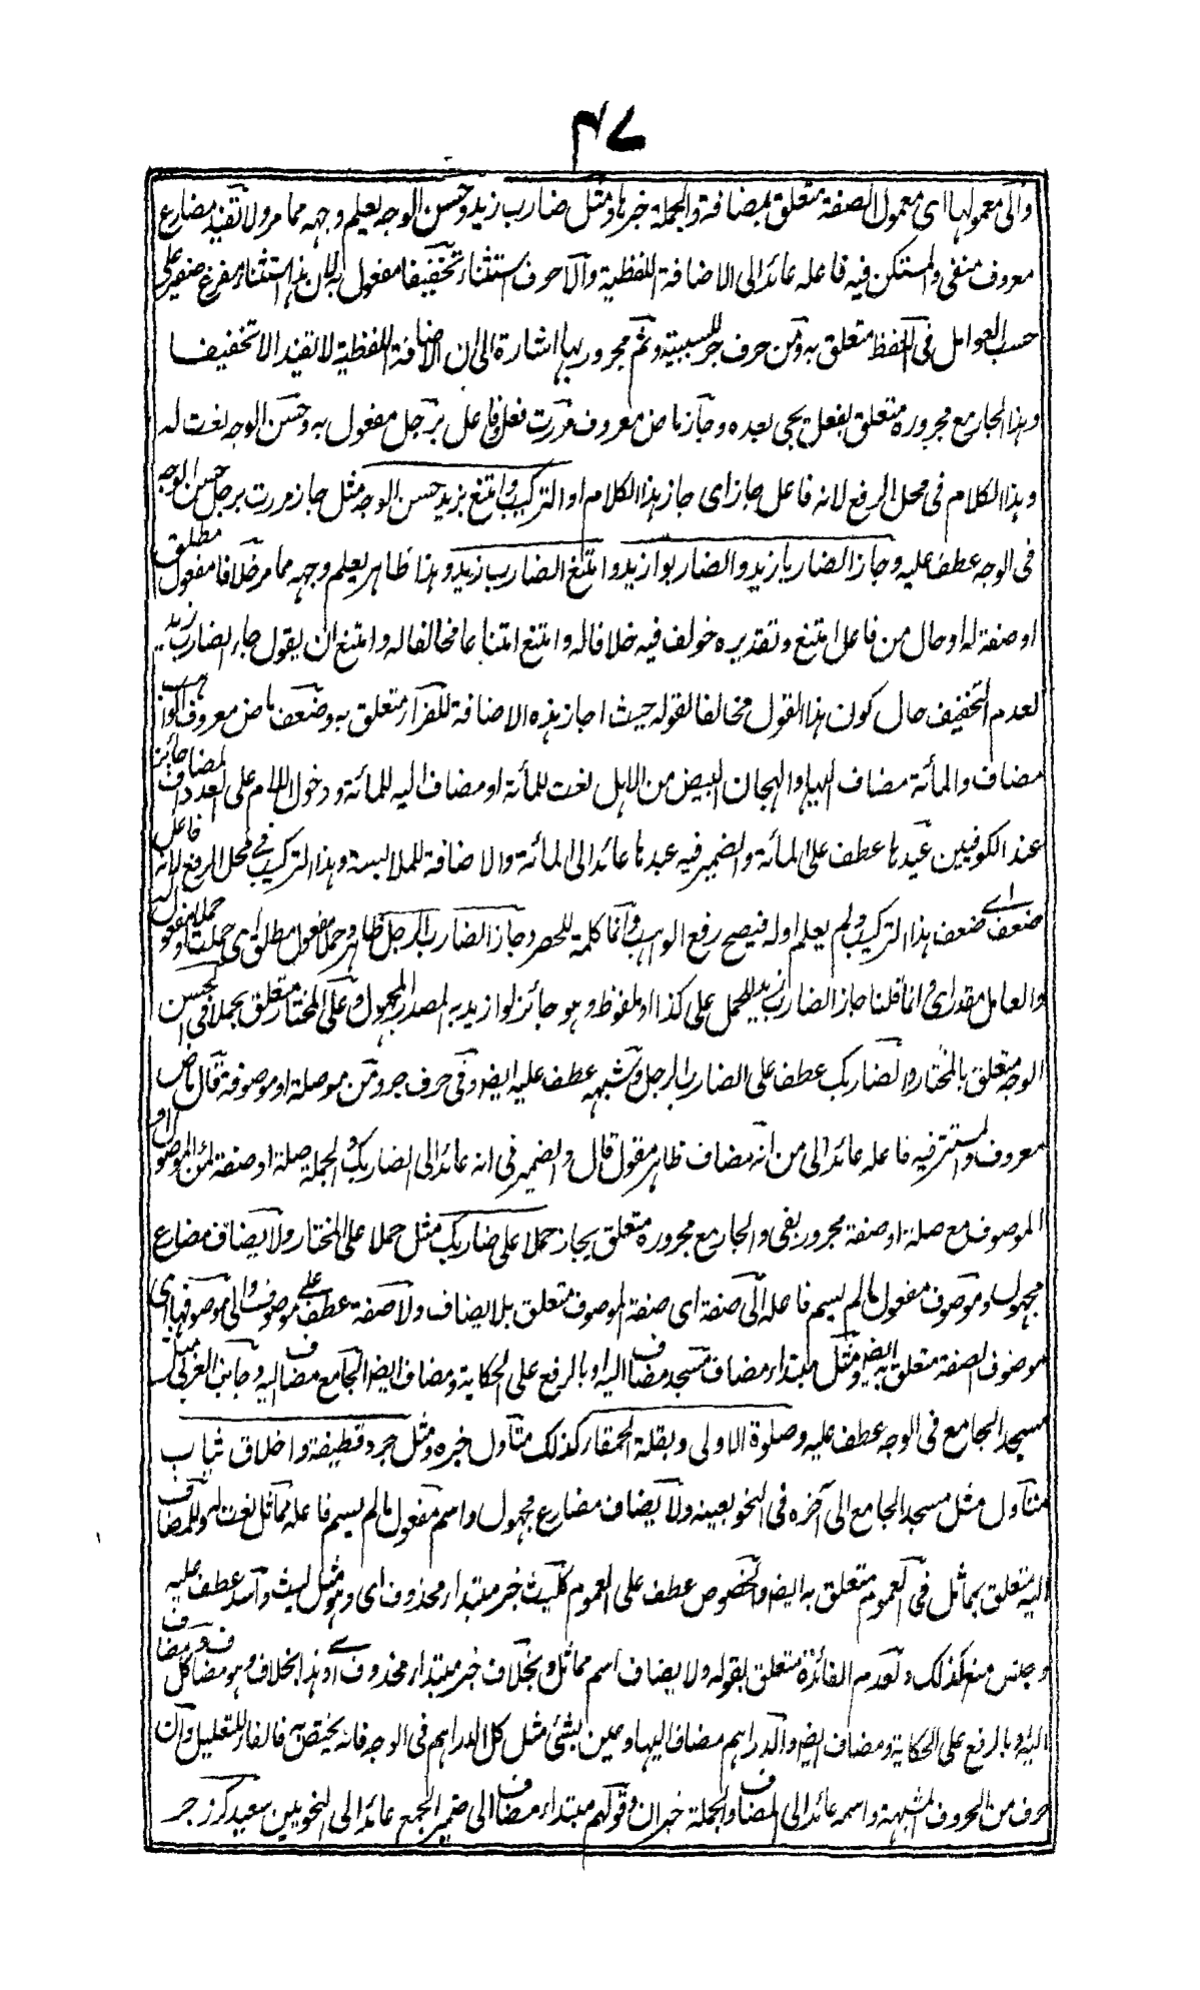 ٤٧
والى معمولها اى معمول الصفة متعلق بمضافة والجملة خبرها ومثل ضارب زيد وحسن الوجه يعلم وجهه مما مر ولا تفيد مضارع
معروف منفى والمستكن فيه فاعله عائد الى الاضافة اللفظية والا حرف استثناء تخفيفا مفعول به لان هذا استثناء مفرغ فيعرب على
حسب العوامل فى اللفظ متعلق به ومن حرف جر للسببية وثم مجرور بها اشارة الى ان الاضافة اللفظية لا تفيد الا تخفيفا
وهذا الجار مع مجروره متعلق بفعل يجى بعده وجاز ماض معروف مررت فعل فاعل برجل مفعول به وحسن الوجه نعت له
وهذا الكلام فى محل الرفع لانه فاعل جاز اى جاز هذا الكلام او التركيب وامتنع بزيد حسن الوجه مثل جاز مررت برجل حسن الوجه
فى الوجه عطف عليه وجاز الضاربا زيد والضاربوا زيد وامتنع الضارب زيد وهذا ظاهر يعلم وجهه مما مر خلافا مفعول مطلق
او صفة له او حال من فاعل امتنع وتقديره خولف فيه خلافا له وامتنع امتناعا مخالفا له وامتنع ان يقول جاء الضارب زيد
لعدم التخفيف حال كون هذا القول مخالفا لقوله حيث اجاز هذه الاضافة للفراء متعلق به وضعف ماض معروف الواهب
مضاف والمأئة مضاف اليها والهجان البيض من الابل نعت للمأئة او مضاف اليه للمائة ودخول اللام على العدد المضاف جائز
عند الكوفيين عبدها عطف على المأئة والضمير فيه عبدها عائد الى المائة والاضافة للملابسة وهذا التركيب فى محل الرفع لانه فاعل
ضعف اى ضعف هذا التركيب ولم يعلم اوله فيصح رفع الواهب وانما كلمة للحصر وجاز الضارب الرجل ظاهر وحملا مفعول مطلق اى حملت حملا او مفعول له
والعامل مقدر اى وانما قلنا جاز الضارب زيد للحمل على كذا او ملفوظ وهو جائز لو ازيد به المصدر المجهول وعلى المختار متعلق بحملا فى الحسن
الوجه متعلق بالمختار والضاربك عطف على الضارب الرجل وشبهه عطف عليه ايضا وفى حرف جر ومن موصلة او موصوفة قال ماض
معروف والمستتر فيه فاعله عائد الى من انه مضاف ظاهر مقول قال والضمير فى انه عائد الى الضاربك والجملة صلة او صفة لمن الموصول او
الموصوف مع صلة او صفة مجرور بفى والجار مع مجروره متعلق بجاز حملا على ضاربك مثل حملا على المختار ولا يضاف مضارع
مجهول وموصوف مفعول مالم يسم فاعله الى صفة اى صفة الموصوف متعلق بلا يضاف ولا صفة عطف على موصوف والى موصوفها اى
موضوف الصفة متعلق به ايضا ومثل مبتداء مضاف مسجد مضاف اليه او بالرفع على الحكاية ومضاف ايضا الجامع مضاف اليه وجانب الغربى مثل
مسجد الجامع فى الوجه عطف عليه وصلوة الاولى وبقلة الحمقاء كذلك متأول خبره ومثل جرد قطيفة واخلاق ثياب
متأول مثل مسجد الجامع الى آخره فى النحو بعينه ولا يضاف مضارع مجهول واسم مفعول مالم يسم فاعله مماثل نعت له وللمضاف
اليه متعلق بمماثل فى العموم متعلق به ايضا والخصوص عطف على العموم كليث خبر مبتداء محذوف اى وهو مثل ليث واسد عطف عليه
وحبس ومنع كذلك ولعدم الفائدة متعلق بقوله ولا يضاف اسم مماثل وبخلاف خبر مبتداء محذوف اى وهذا بخلاف وهو مضاف وكل مضاف
اليه او بالرفع على الحكاية ومضاف ايضا والدراهم مضاف اليها وعين الشئ مثل كل الدراهم فى الوجه فانه يختص به فالفاء للتعليل وان
حرف من الحروف المشبهة واسمه عائد الى المضاف والجملة خبر ان وقولهم مبتداء مضاف الى ضمير الجمع عائد الى النحويين سعيد كرز جر